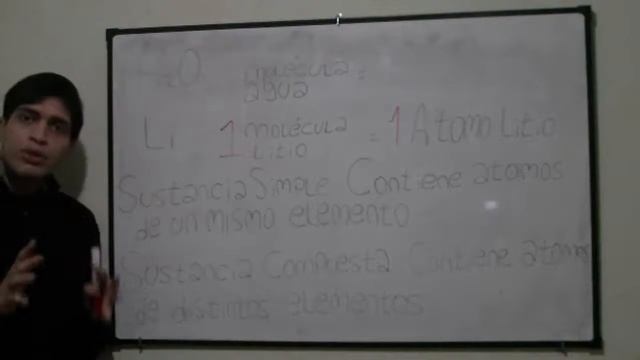 H₂O molécula =
agua
Li 1 molécula = 1 Atomo Litio
Litio
Sustancia Simple Contiene atomos
de un mismo elemento
Sustancia Compuesta Contiene atomos
de distintos elementos